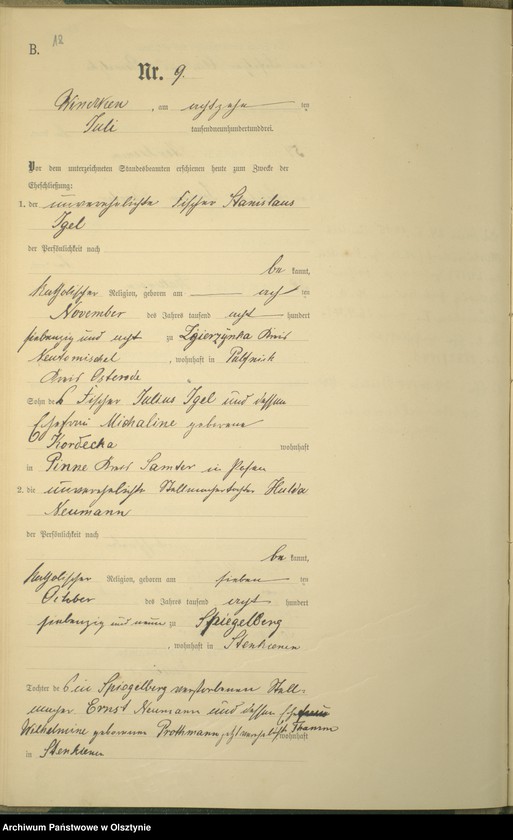 B. 12
Nr. 9.
, am achtzehn ten
Juli tausendneunhundertunddrei.
Vor dem unterzeichneten Standesbeamten erschienen heute zum Zwecke der
Eheschließung:
1. der unverehelichte Fischer Stanislaus
Igel
der Persönlichkeit nach
be kannt,
katholischer Religion, geboren am acht ten
November des Jahres tausend acht hundert
siebenzig und acht zu Zgierzynka Kreis
Neutomischel , wohnhaft in
Kreis Osterode
Sohn des Fischer Julius Igel und dessen
Ehefrau Michaline geborene
Kordecka wohnhaft
in Pinne Kreis Samter in Posen
2. die unverehelichte Stellmachertochter Hulda
Neumann
der Persönlichkeit nach
be kannt,
katholischer Religion, geboren am sieben ten
October des Jahres tausend acht hundert
siebenzig und neun zu Spiegelberg
, wohnhaft in Stenkienen
Tochter des in Spiegelberg verstorbenen Stell-
macher Ernst Neumann und dessen Ehefrau
Wilhelmine geborenen Prothmann jetzt verehelicht wohnhaft
in Stenkienen
Archiwum Państwowe w Olsztynie